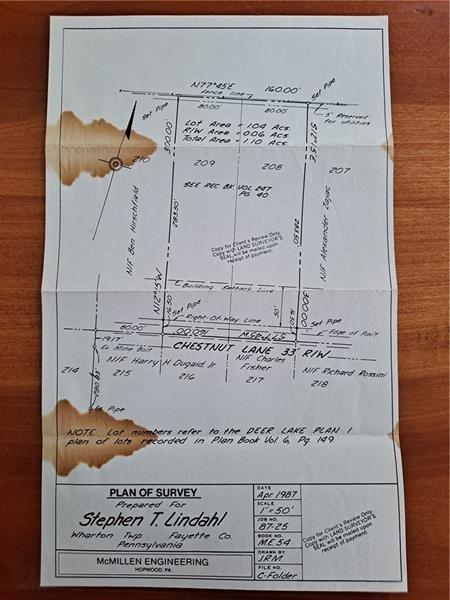 N77°45'E 160.00'
fence line
80.00' 80.00'
Set Pipe
Set Pipe
5' Reserved
for utilities
Lot Area = 1.04 Acs.
R/W Area = 0.06 Acs.
Total Area = 1.10 Acs.
300.00'
S12°15'E
210
209
208
207
SEE REC. BK. VOL 247
PG. 40
N/F Ben Hirschfield
283.50'
283.50'
N/F Alexander Zajac
Copy for Client's Review Only.
Copy with LAND SURVEYOR'S
SEAL will be mailed upon
receipt of payment.
N12°15'W
Building Setback Line
50'
300.00'
16.50'
16.50'
Set Pipe
Set Pipe
Right-Of-Way Line
80.00'
160.00'
S77°45'W
Edge of Rails
19.17'
Ex Mine Bolt
CHESTNUT LANE 33' R/W
N/F Harry H Dugald Jr
N/F Charles
Fisher
N/F Richard Rossini
214
215
216
217
218
280.83'
Ex. Pipe
NOTE: Lot numbers refer to the DEER LAKE PLAN 1
plan of lots recorded in Plan Book Vol 6, Pg 149
PLAN OF SURVEY
Prepared For
Stephen T. Lindahl
Wharton Twp Fayette Co.
Pennsylvania
McMILLEN ENGINEERING
HOPWOOD, PA.
DATE
Apr 1987
SCALE
1" = 50'
JOB NO.
87-25
BOOK NO.
M.E. 54
DRAWN BY
J.R.M.
FILE NO.
C-Folder
Copy for Client's Review Only.
Copy with LAND SURVEYOR'S
SEAL will be mailed upon
receipt of payment.